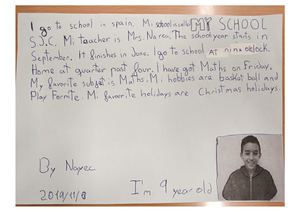 MY SCHOOL
I go to school in spain. Mi school is called
S.J.C. Mi teacher is Mrs Narea. The school year starts in
September. It finishes in June. I go to school AT nine o'clock.
Home at quarter past four. I have got Maths on Friday.
My favorite subject is Maths. Mi hobbies are basket ball and
Play Fornite. Mi favorite holidays are Christmas holidays.
By
2019/11/8
I'm 9 year old